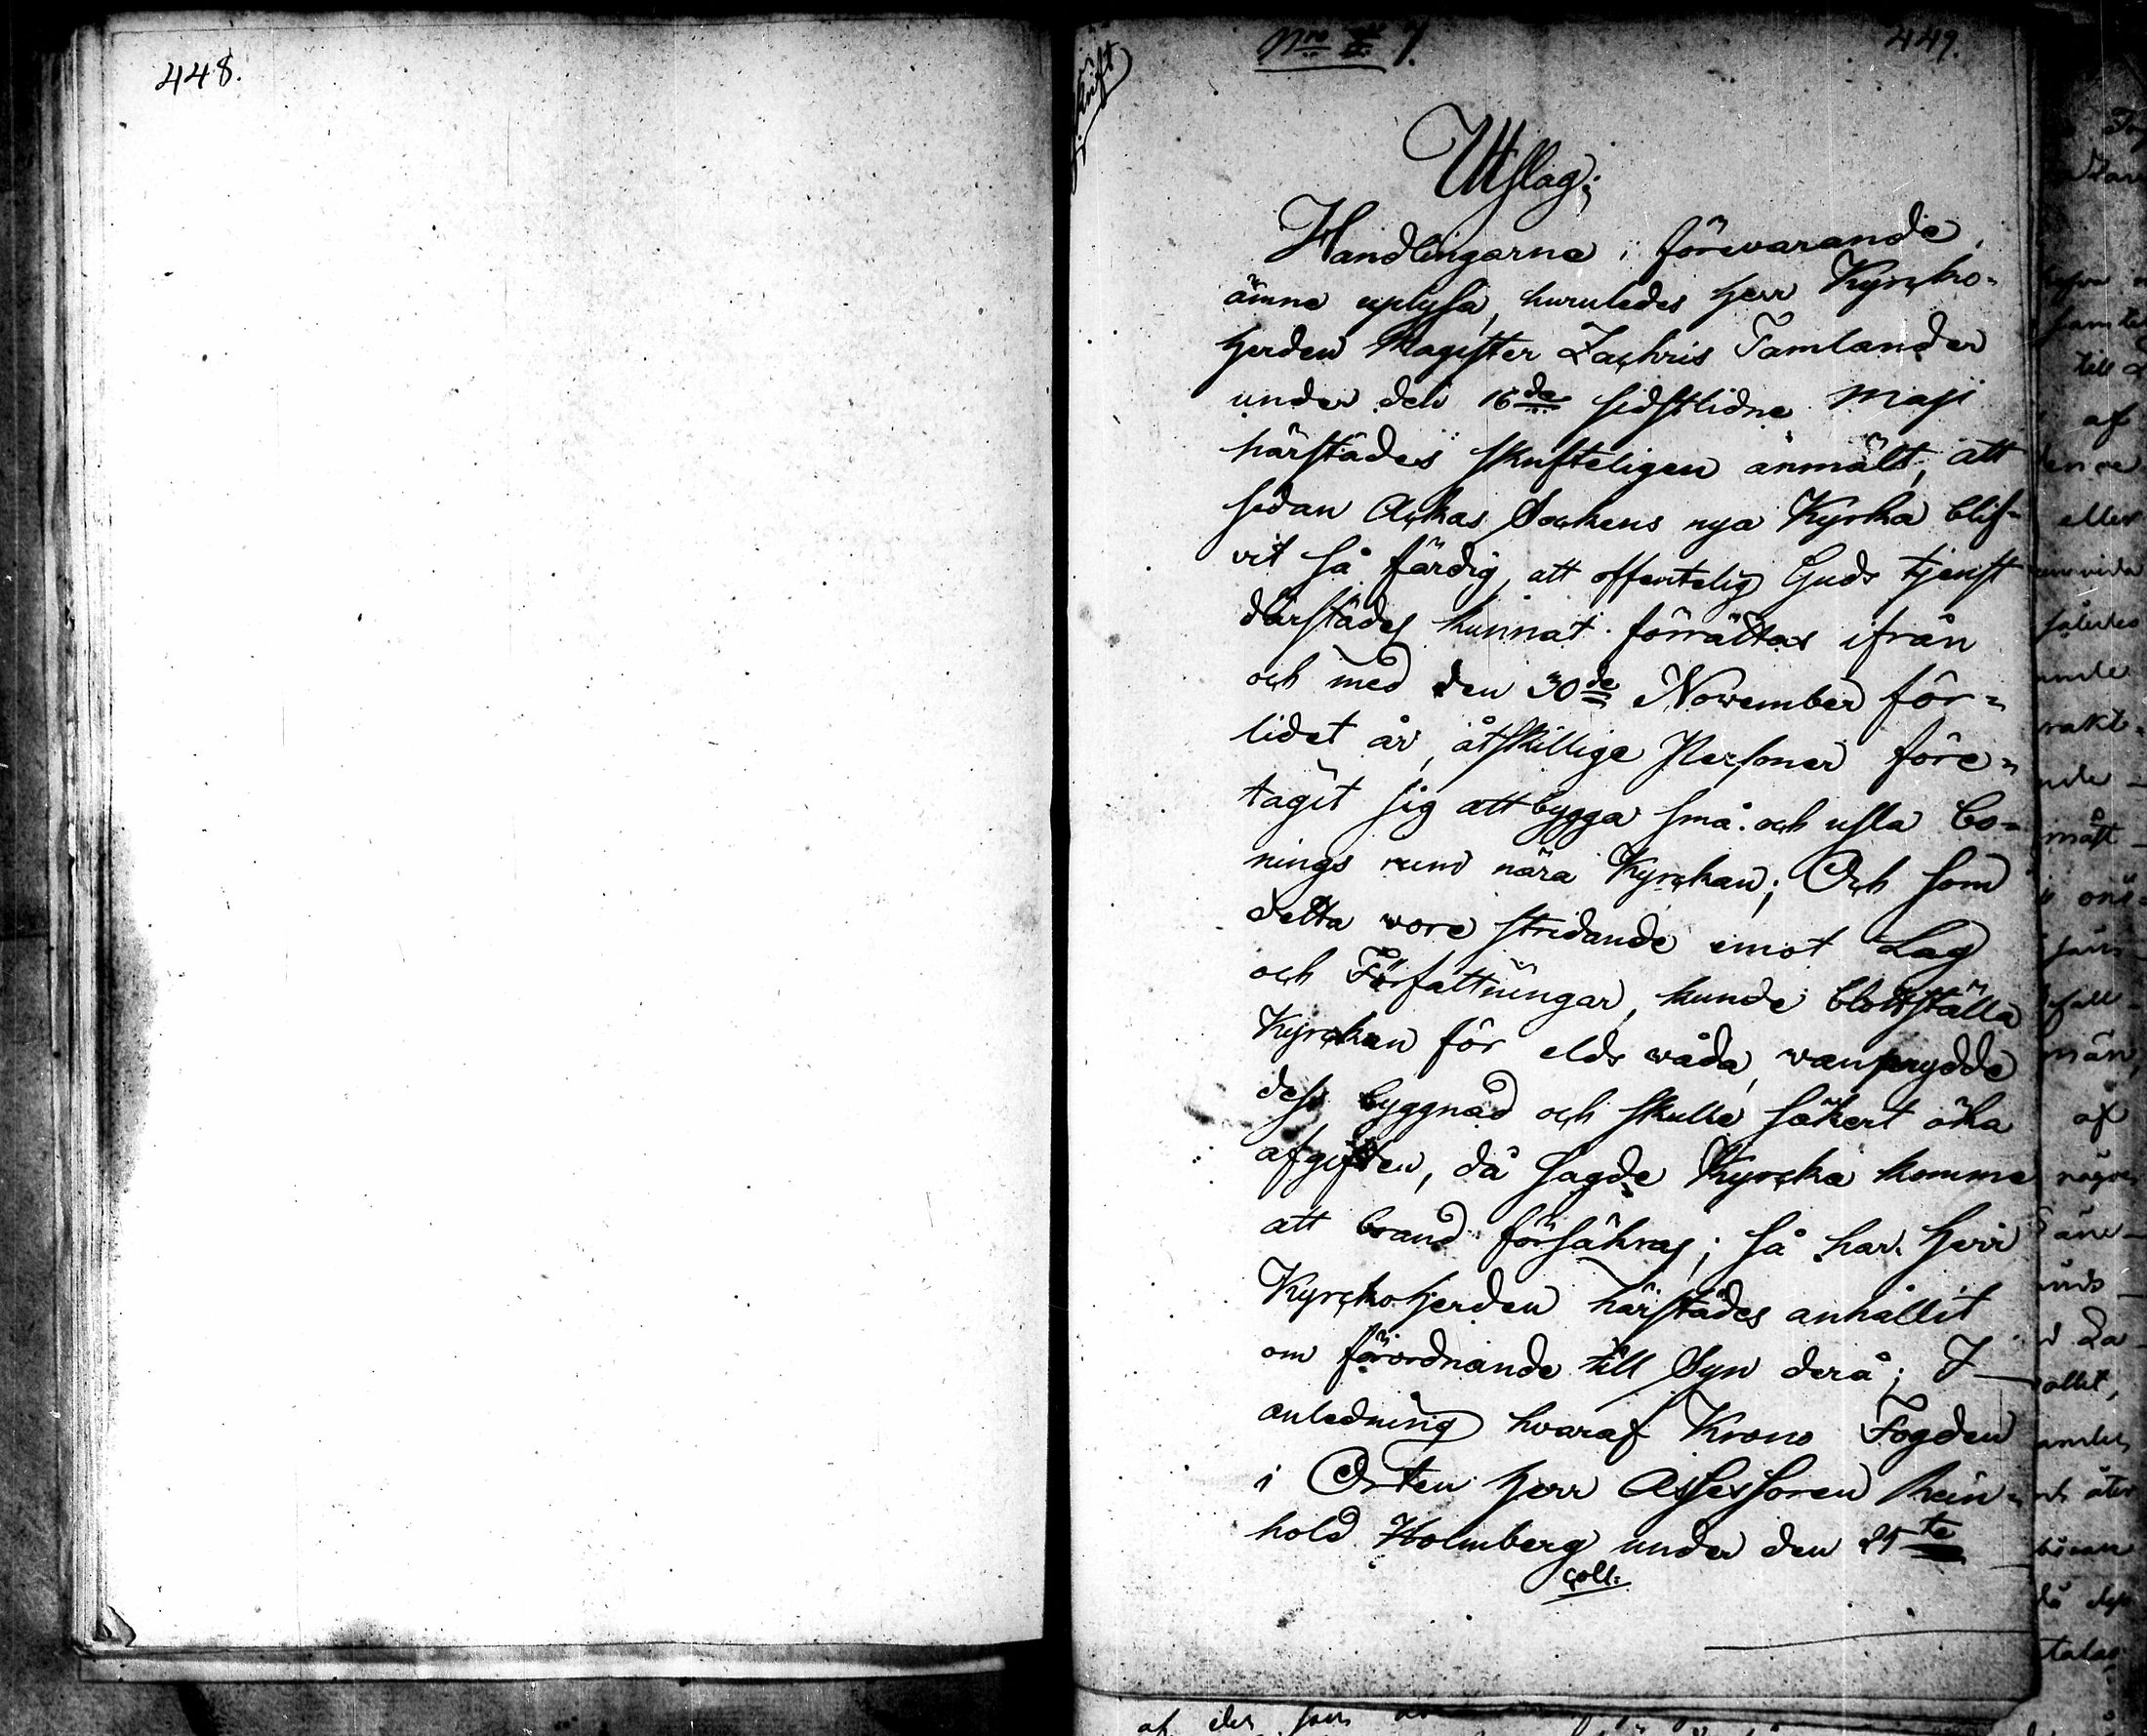 448.
Nro 7.
449.
Utslag;
Handlingarne i förevarande
ämne uplysa, huruledes Herr Kyrcko-
herden Magister Zachris Tamlander
under den 16de sidstlidne Maji
härstädes skrifteligen anmält, att
sedan Ackas Sockens nya Kyrka blif-
vit så färdig, att offentelig Guds tjenst
därstädes kunnat förrättas ifrån
och med den 30de November för-
lidet år, åtskillige Personer före-
tagit sig att bygga små och usla bo-
nings rum nära Kyrckan; Och som
detta vore stridande emot Lag
och Författningar, kunde blottställa
Kyrckan för elds våda, vanprydde
dess byggnad och skulle säkert öka
afgiften, då sagde Kyrcka komme
att brand försäkras; så har Herr
Kyrckoherden härstädes anhållit
om förordnande till Syn derå; I
anledning hvaraf Krono Fogden
i Orten Herr Assessoren Rein-
hold Holmberg under den 21te
coll: